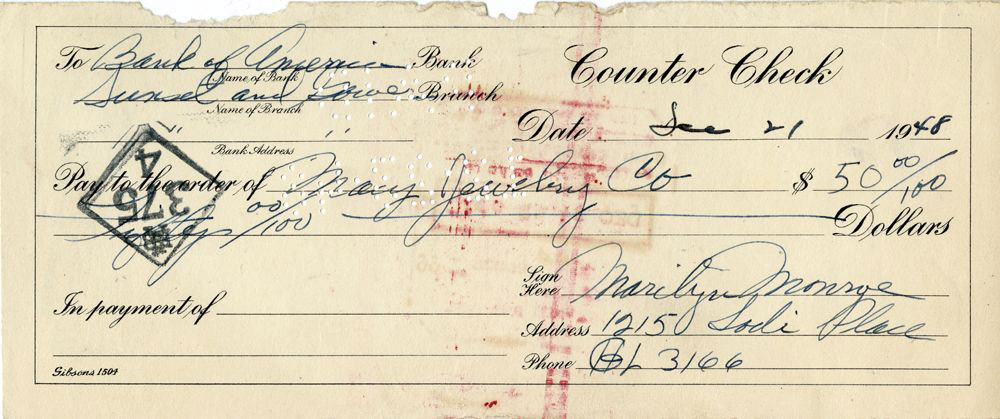 To Bank of America Bank
Name of Bank
Sunset and Branch
Name of Branch
" "
Bank Address
Counter Check
Date Dec 21 1948
Pay to the order of Jewelry Co $ 50 00/100
00/100 Dollars
Sign Here Marilyn Monroe
In payment of
Address 1215 Lodi Place
Phone GL 3166
Gibsons 1504
4
375